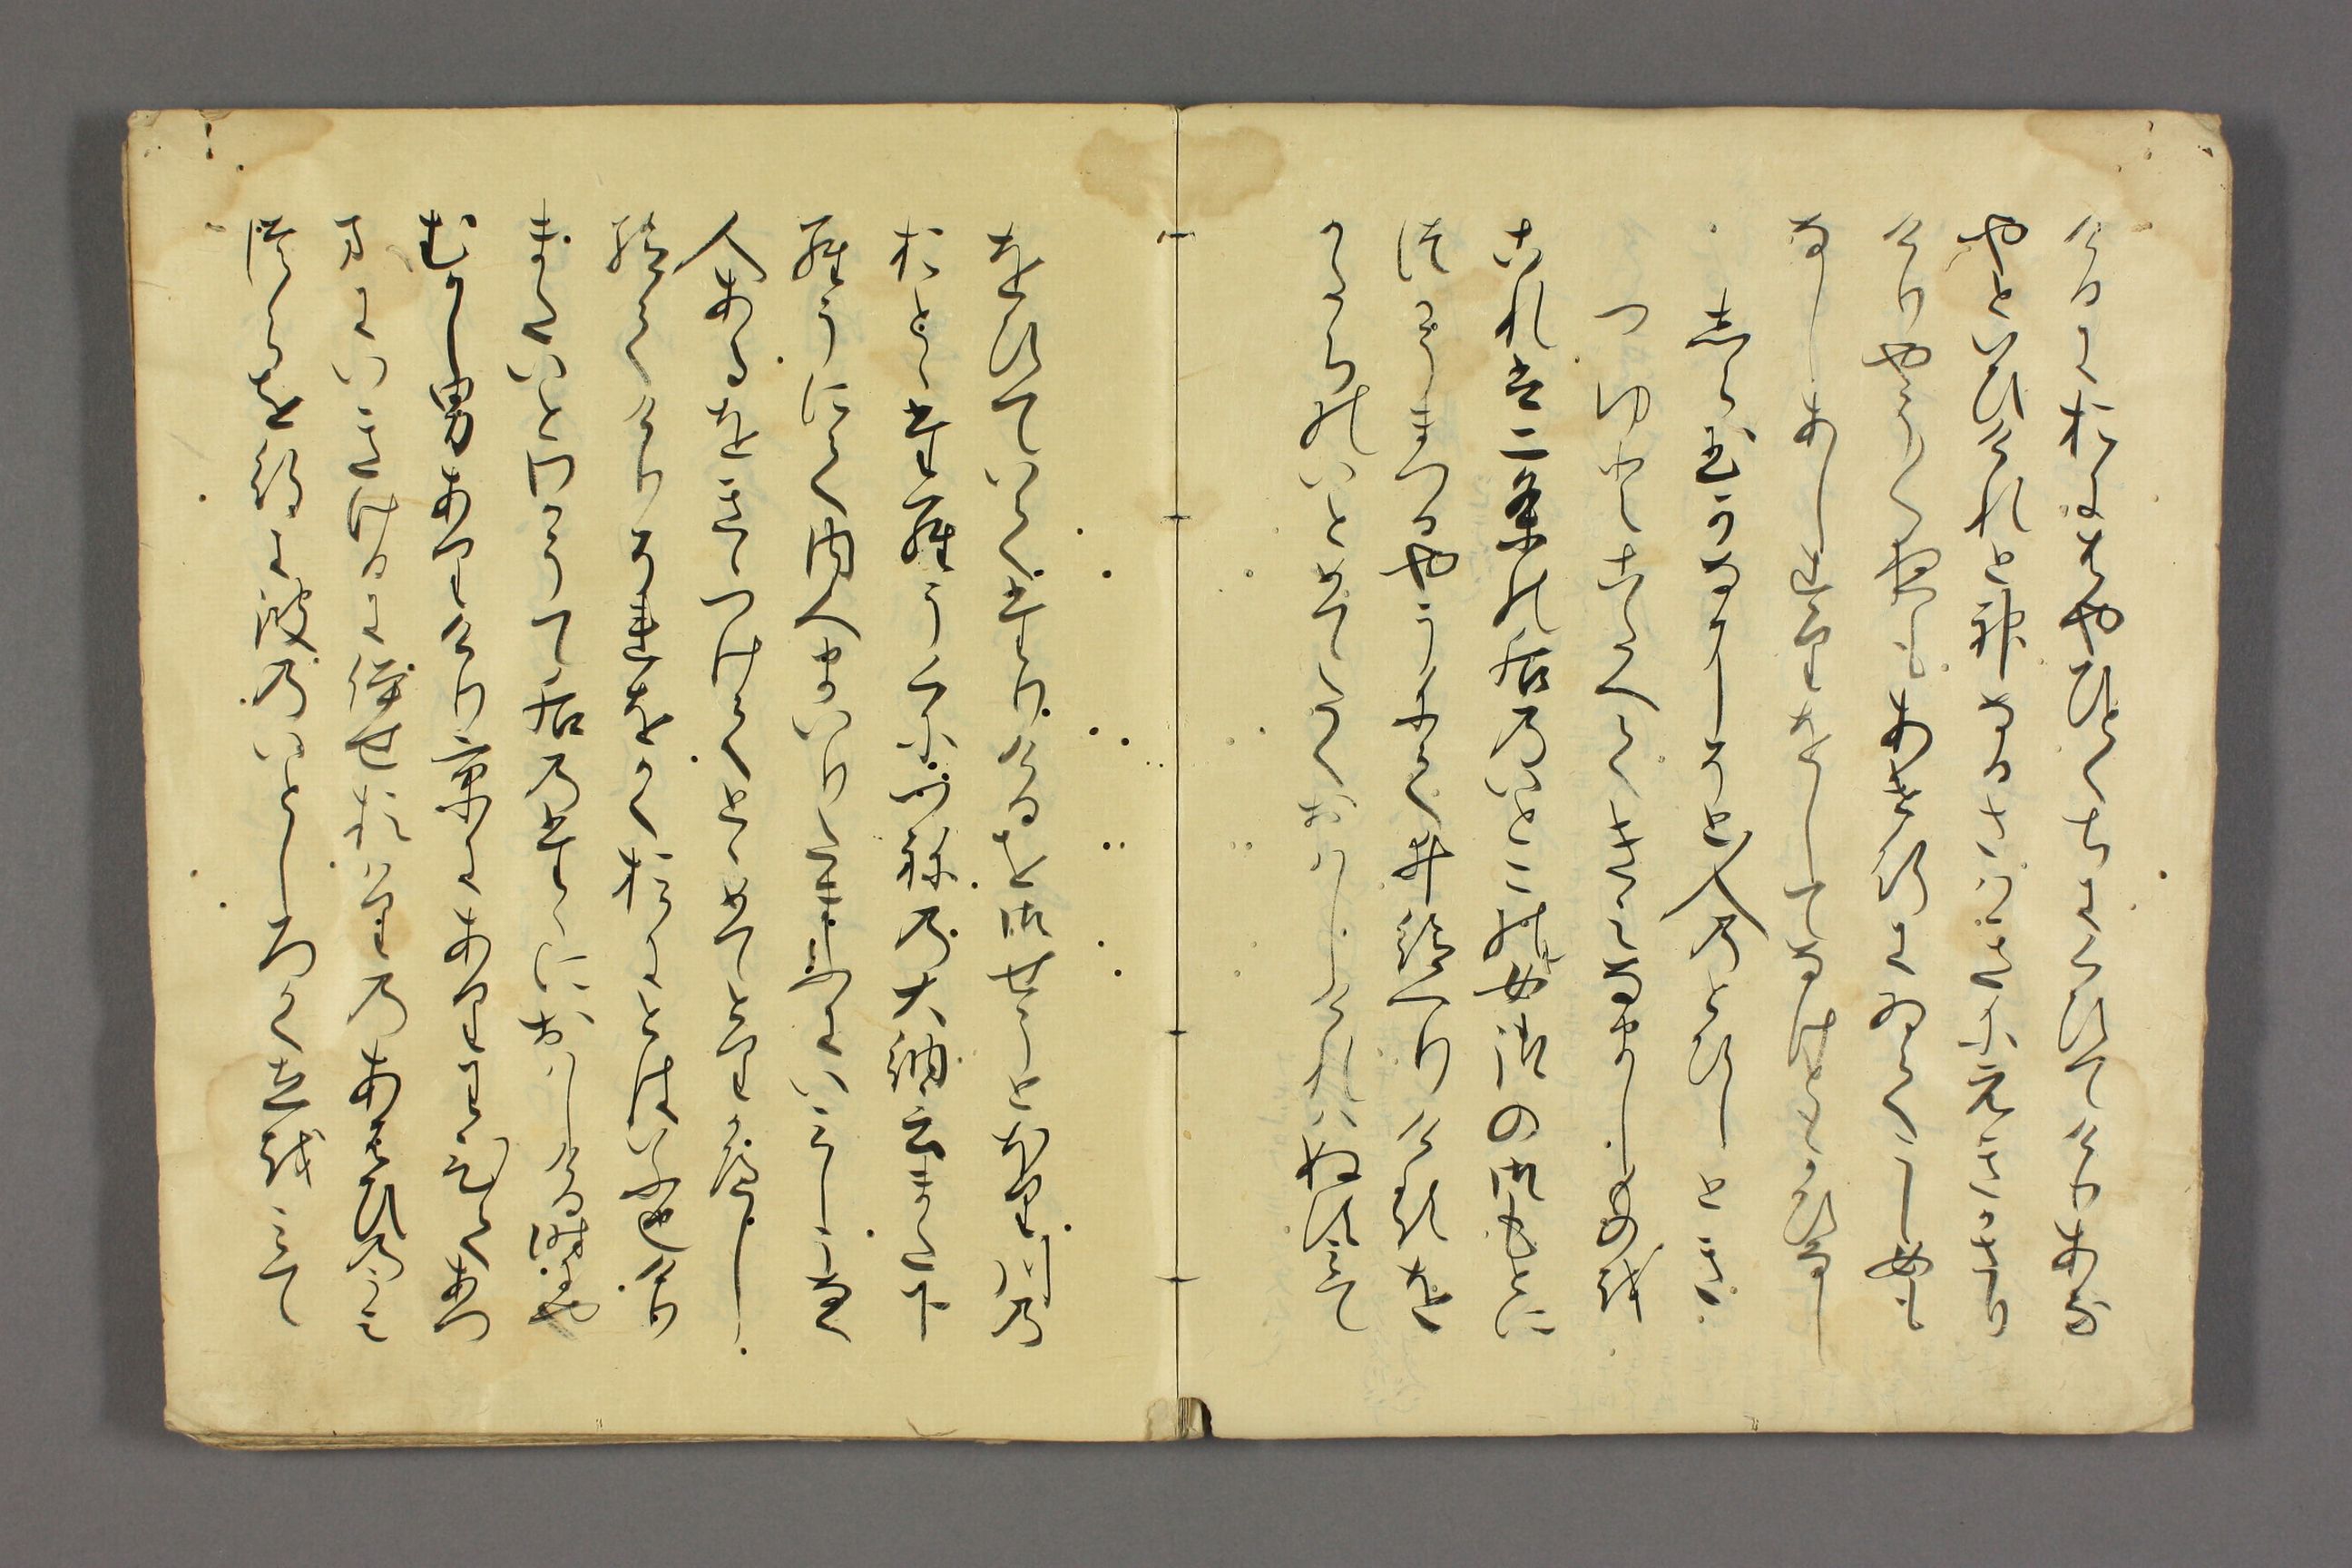 けるにおにはやひとくちにくひてけりあな
やといひけれと神なるさはきにえきかさり
けりやう〳〵夜もあけ行にみれはゐてこし女も
なしあしすりをしてなけともかひなし
しら玉かなにそと人のとひしとき
つゆとこたへてきえなましものを
これは二条の后のいとこの女御の御もとに
つかうまつるやうにてゐ給へりけるを
かたちのいとめてたくおはしけれはぬすみて
をひていてたりけるを御せうとほり河の
おとゝ太郎くにつねの大納言また下
らうにて内へまいり給ふにいみしうなく
人あるをきゝつけてとゝめてとりかへし
給てけりそれをかくおにとはいふ也けり
またいとわかうて后のたゝにおはしける時とや
むかし男ありけり京にありわひてあつ
まにいきけるに伊勢おはりのあはひの
海つらを行に浪のいとしろくたつを見て